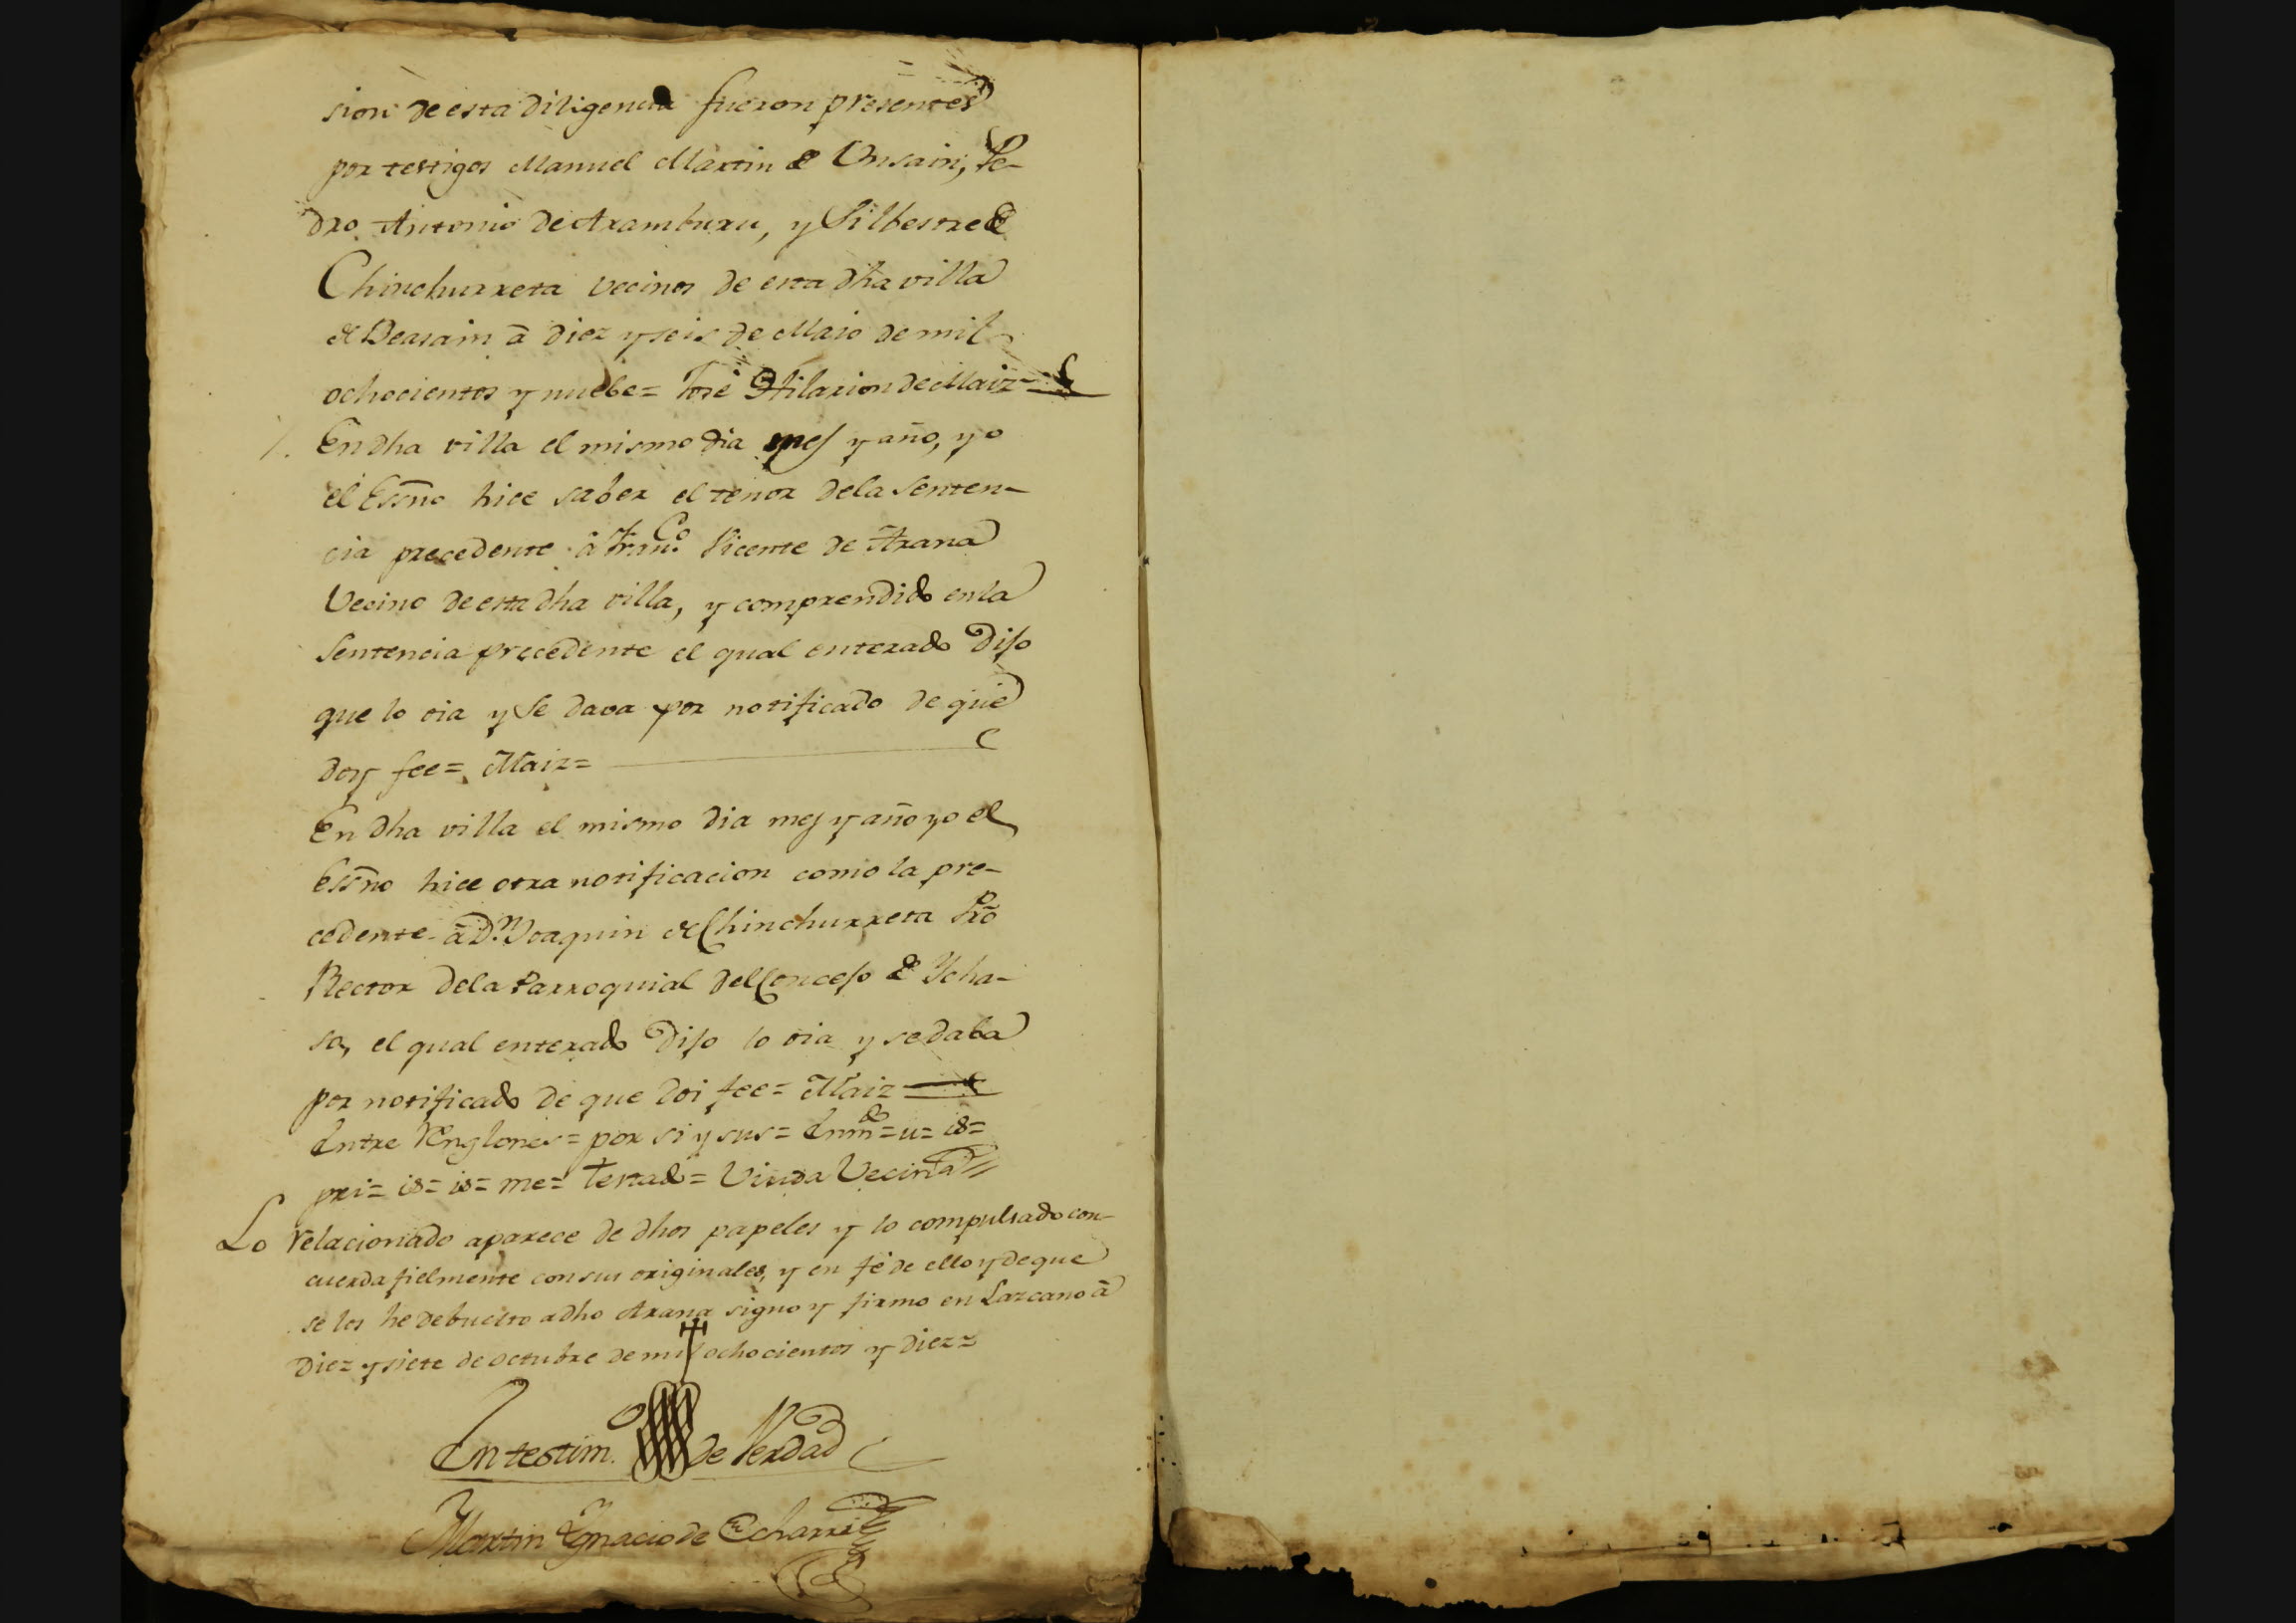 sion de esta diligencia fueron presentes
por testigos Manuel Martin de Unsain, Pe-
dro Antonio de Aramburu, y Silbestre de
Chinchurreta vecinos de esta dha villa
de Beasain â diez y seis de Maio de mil
ochocientos y nuebe= José Hilarion de Maiz=
En dha villa el mismo dia mes y año, yo
el Essno hice saber el tenor dela senten-
cia precedente â Franco. Vicente de Arana
Vecino de esta dha villa, y comprendido en la
Sentencia precedente el qual enterado Dijo
que lo oia y se dava por notificado de que
doy fee= Maiz=
En dha villa el mismo dia mes y año yo el
Essno hice otra notificacion como la pre-
cedente â Dn. Joaquin de Chinchurreta Pro
Rector dela Parroquial del Concejo de Ycha-
so, el qual enterado Dijo lo oia y se daba
por notificado de que doi fee= Maiz
Entre Renglones= por si y sus= = u= is=
pri= is= is= me= Testado= Viuda Vecina
Lo relacionado aparece de dhos papeles y lo compulsado con-
cuerda fielmente con sus originales, y en fé de ello y de que
se los he debuelto a dho Arana signo y firmo en Lazcano â
Diez y siete de octubre de mil ochocientos y diez=
En testimo. de Verdad
Martin Ygnacio de Echarri